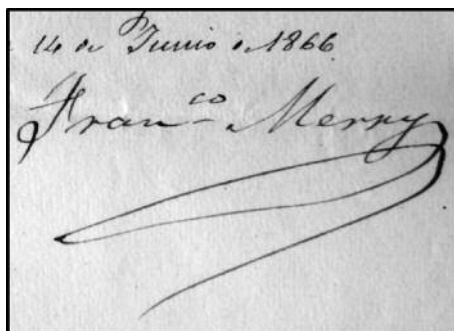 14 de Junio de 1866
Fran.co Merry